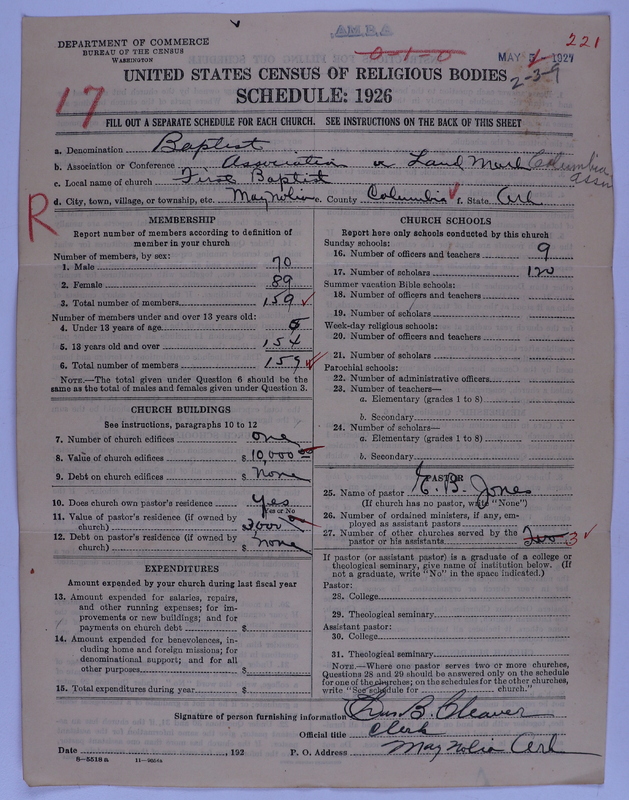 A.M.B.A.
DEPARTMENT OF COMMERCE
BUREAU OF THE CENSUS
WASHINGTON
0-1-0
MAY 1927
221
2-3-9
UNITED STATES CENSUS OF RELIGIOUS BODIES
SCHEDULE: 1926
17
FILL OUT A SEPARATE SCHEDULE FOR EACH CHURCH. SEE INSTRUCTIONS ON THE BACK OF THIS SHEET
a. Denomination Baptist
b. Association or Conference Association or Land Mark Columbia Assn
c. Local name of church First Baptist
d. City, town, village, or township, etc. Magnolia e. County Columbia f. State Ark
R
MEMBERSHIP
Report number of members according to definition of
member in your church
Number of members, by sex:
1. Male 70
2. Female 89
3. Total number of members 159
Number of members under and over 13 years old:
4. Under 13 years of age 5
5. 13 years old and over 154
6. Total number of members 159
NOTE.—The total given under Question 6 should be the
same as the total of males and females given under Question 3.
CHURCH BUILDINGS
See instructions, paragraphs 10 to 12
7. Number of church edifices one
8. Value of church edifices $10,000 00
9. Debt on church edifices $ none
10. Does church own pastor's residence Yes
Yes or No
11. Value of pastor's residence (if owned by
church) $3000 00
12. Debt on pastor's residence (if owned by
church) $ none
EXPENDITURES
Amount expended by your church during last fiscal year
13. Amount expended for salaries, repairs,
and other running expenses; for im-
provements or new buildings; and for
payments on church debt $
14. Amount expended for benevolences, in-
cluding home and foreign missions; for
denominational support; and for all
other purposes $
15. Total expenditures during year $
CHURCH SCHOOLS
Report here only schools conducted by this church
Sunday schools:
16. Number of officers and teachers 9
17. Number of scholars 120
Summer vacation Bible schools:
18. Number of officers and teachers
19. Number of scholars
Week-day religious schools:
20. Number of officers and teachers
21. Number of scholars
Parochial schools:
22. Number of administrative officers
23. Number of teachers—
a. Elementary (grades 1 to 8)
b. Secondary
24. Number of scholars—
a. Elementary (grades 1 to 8)
b. Secondary
PASTOR
25. Name of pastor E. B. Jones
(If church has no pastor, write "None")
26. Number of ordained ministers, if any, em-
ployed as assistant pastors
27. Number of other churches served by the
pastor or his assistants Two 3
If pastor (or assistant pastor) is a graduate of a college or
theological seminary, give name of institution below. (If
not a graduate, write "No" in the space indicated.)
Pastor:
28. College
29. Theological seminary
Assistant pastor:
30. College
31. Theological seminary
NOTE.—Where one pastor serves two or more churches,
Questions 28 and 29 should be answered only on the schedule
for one of the churches; on the schedules for the other churches,
write "See schedule for church."
Signature of person furnishing information B. Cleaver
Official title Clerk
Date , 192 P. O. Address Magnolia Ark
8—5518 a 11—9954